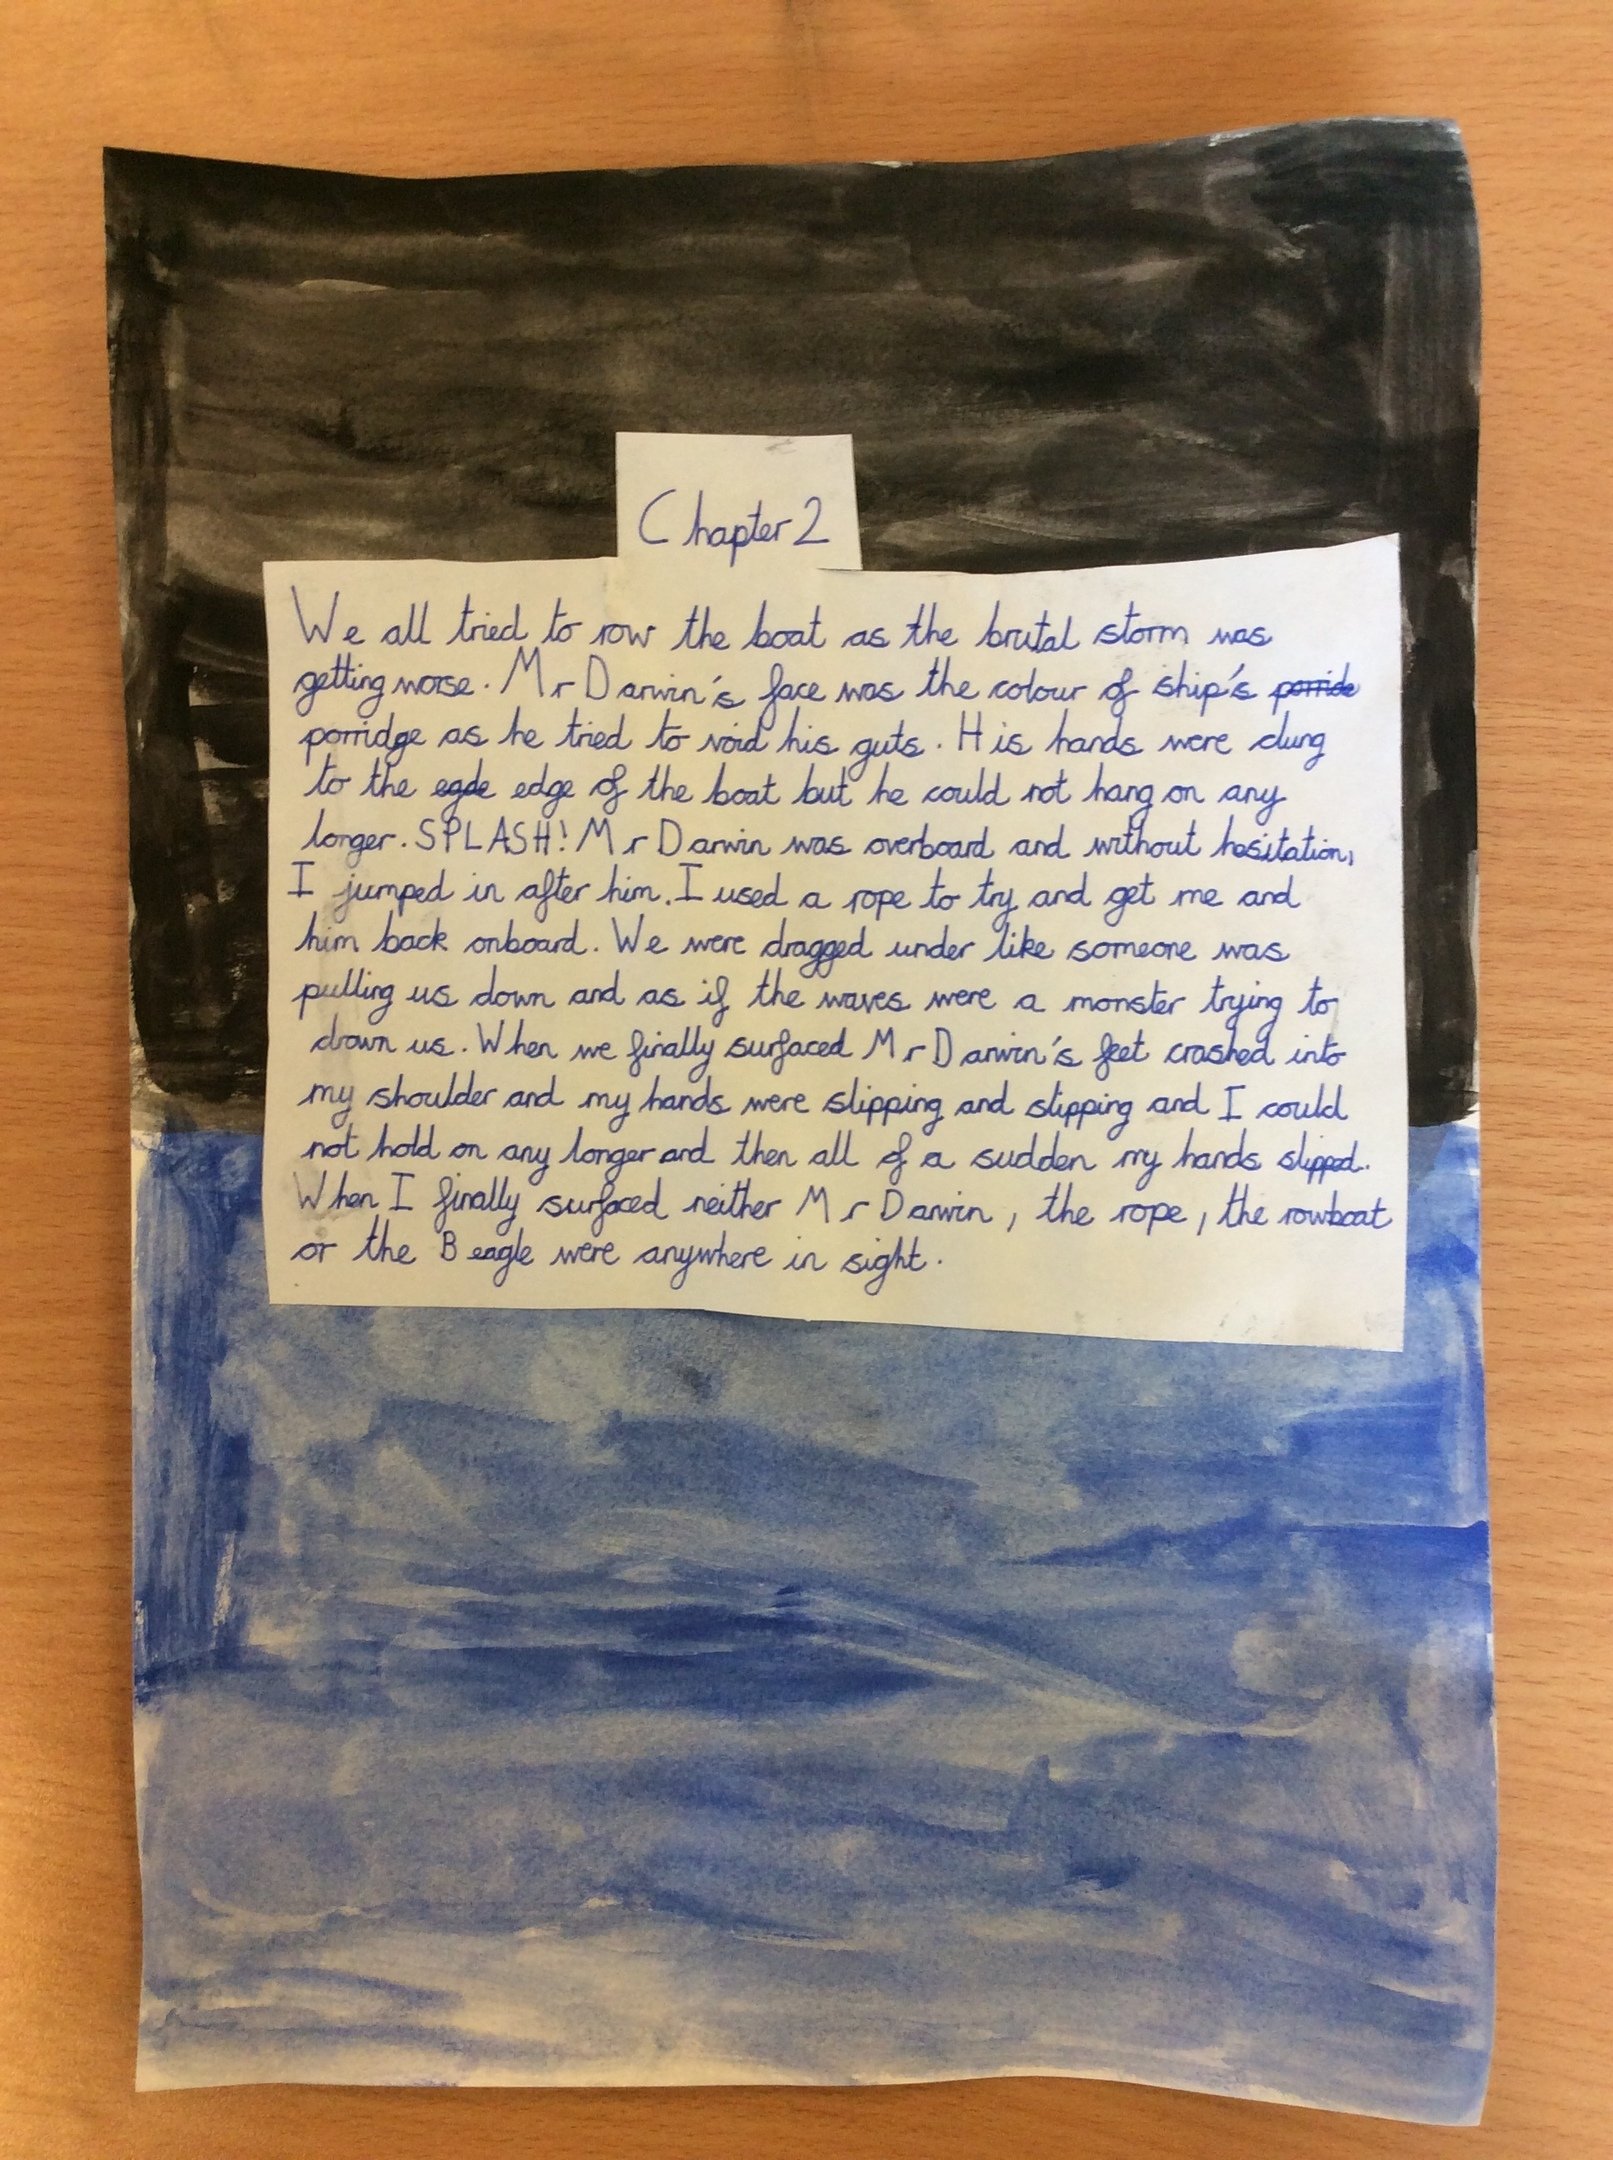 Chapter 2
We all tried to row the boat as the brutal storm was
getting worse. Mr Darwin's face was the colour of ship's porride
porridge as he tried to void his guts. His hands were clung
to the egde edge of the boat but he could not hang on any
longer. SPLASH! Mr Darwin was overboard and without hesitation,
I jumped in after him. I used a rope to try and get me and
him back onboard. We were dragged under like someone was
pulling us down and as if the waves were a monster trying to
drown us. When we finally surfaced Mr Darwin's feet crashed into
my shoulder and my hands were slipping and slipping and I could
not hold on any longer and then all of a sudden my hands slipped.
When I finally surfaced neither Mr Darwin, the rope, the rowboat
or the Beagle were anywhere in sight.